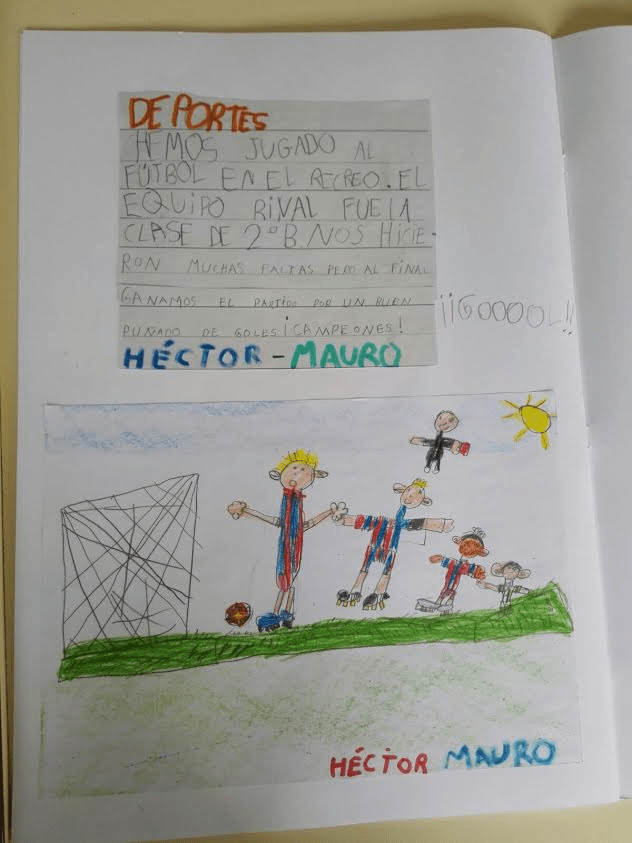 DEPORTES
HEMOS JUGADO AL
FÚTBOL EN EL RECREO. EL
EQUIPO RIVAL FUE LA
CLASE DE 2º B. NOS HICIE-
RON MUCHAS FALTAS PERO AL FINAL
GANAMOS EL PARTIDO POR UN BUEN
PUÑADO DE GOLES ¡CAMPEONES!
HÉCTOR - MAURO
¡¡GOOOOL!!
HÉCTOR MAURO